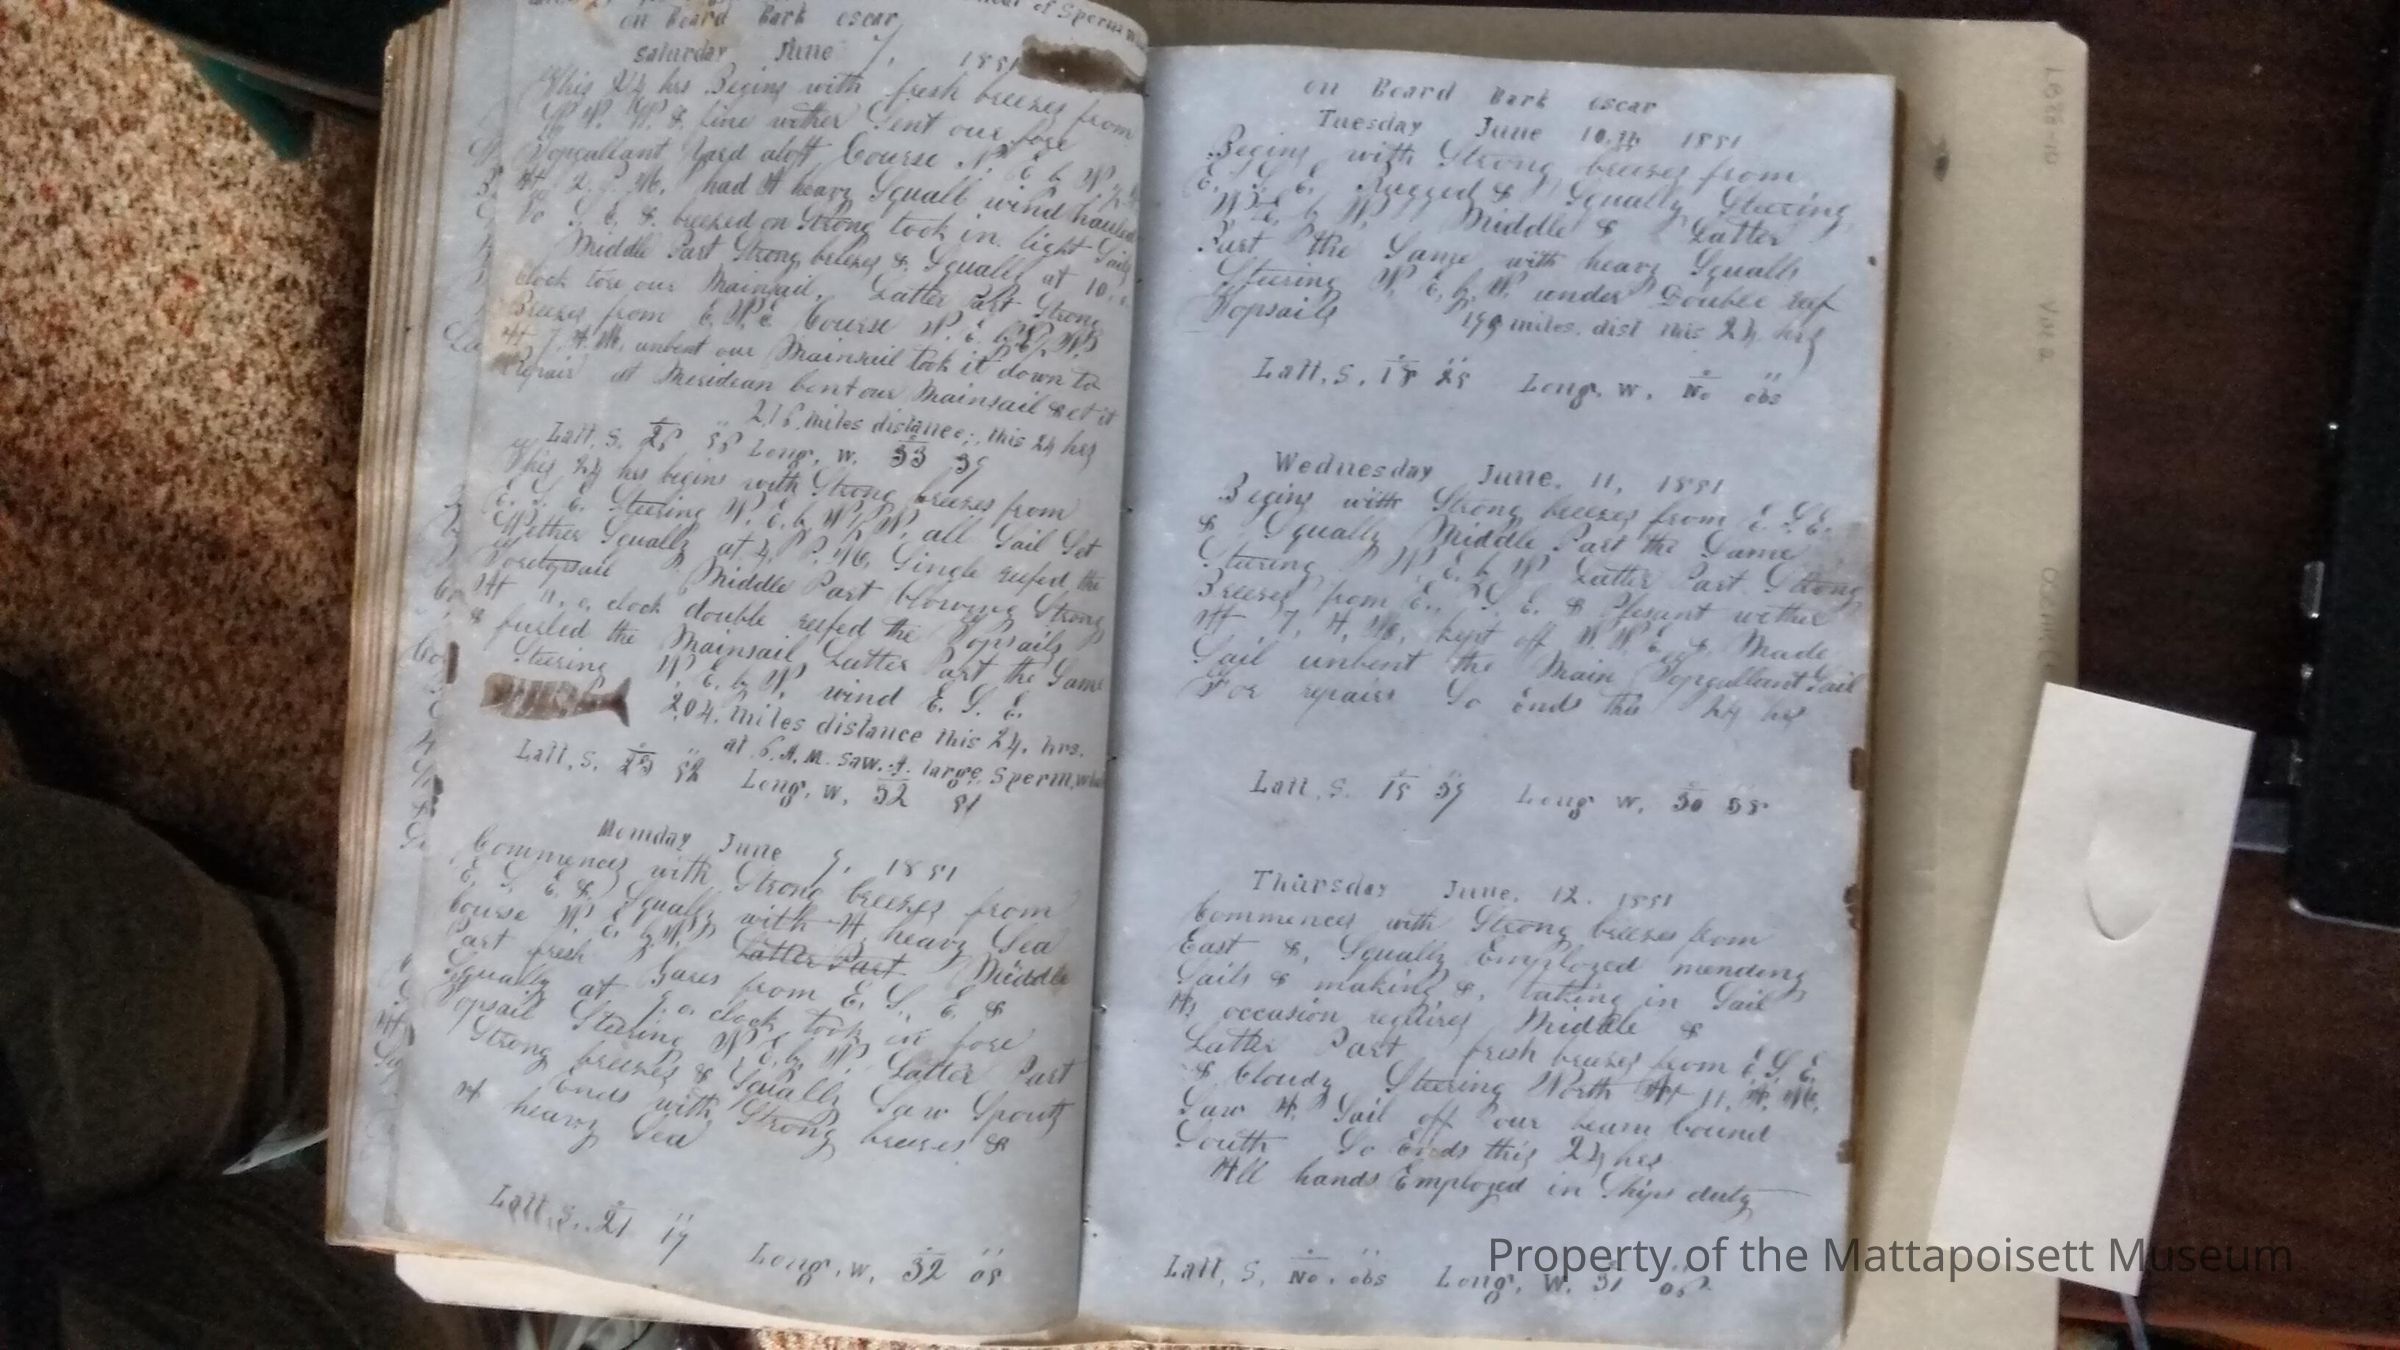 of Sperm
on Board Bark oscar
saturday June 7, 1851
This 24 hrs Begins with fresh breezes from
N. N. W. & fine wether Sent our fore
Topgallant Yard aloft Course N. E b N.
At 2. P. M. had A heavy Squall wind hauled
to S. E. & breezed on Strong took in light Sails
Middle Part Strong breezes & Squally at 10,
clock tore our Mainsail. Latter Part Strong
Breezes from E. N. E Course N. E.
At 7 A. M. unbent our Mainsail took it down to
Repair at Meridean bent our Mainsail & set it
216 miles distance; this 24 hrs
Latt. S. 26 58 Long. W. 33 39
This 24 hrs begins with Strong breezes from
E. S. E. Steering N. E. b N 1/2 N. all Sail Set
Wether Squally at 4, P. M. Single reefed the
Foretopsail Middle Part blowing Strong
At o, clock double reefed the Topsails
& furled the Mainsail Latter Part the Same
Steering N. E. by N. wind E. S. E.
204. miles distance this 24. hrs.
at 6. A. M. saw. A. large sperm, whale
Latt. S. 23 52 Long. W. 32 51
Monday June 9. 1851
Commences with Strong breezes from
E. S. E. & Squally with A heavy Sea
Course N. E. by N. Latter Part Middle
Part fresh Gales from E. S. E. &
Squally at 9. o, clock took in fore
Topsail Steering N. E. by N. Latter Part
Strong breezes & Squally Saw Spouts
Ends with Strong breezes &
A heavy Sea
Latt. S. 21 19 Long. W. 32 05
on Board Bark oscar
Tuesday June 10.th 1851
Begins with Strong breezes from
E. S. E. Rugged & Squally Steering
N. E. b N. Middle & Latter
Part the Same with heavy Squalls
Steering N. E. b. N. under Double raf
Topsails 199 miles. dist this 24 hrs
Latt. S. 18 25 Long. W. No obs
Wednesday June. 11, 1851
Begins with Strong breezes from E. S. E.
& Squally Middle Part the Same
Steering N. E. b N Latter Part Strong
Breezes from E. S. E. & Plesant wether
At 7, A, M. kept off N. N. E. & Made
Sail unbent the Main Topgallant Sail
For repairs So Ends this 24 hrs
Latt. S. 15 39 Long W. 30 55
Thursday June. 12. 1851
Commences with Strong breezes from
East &, Squally Employed mending
Sails & making &, taking in Sail
As occasion requires Middle &
Latter Part fresh breezes from E S E.
& Cloudy Steering North At 11, A. M.
Saw A. Sail off our beam bound
South So Ends this 24 hrs
All hands Employed in Ships duty
Latt, S, No. obs Long. W. 31 05
Property of the Mattapoisett Museum